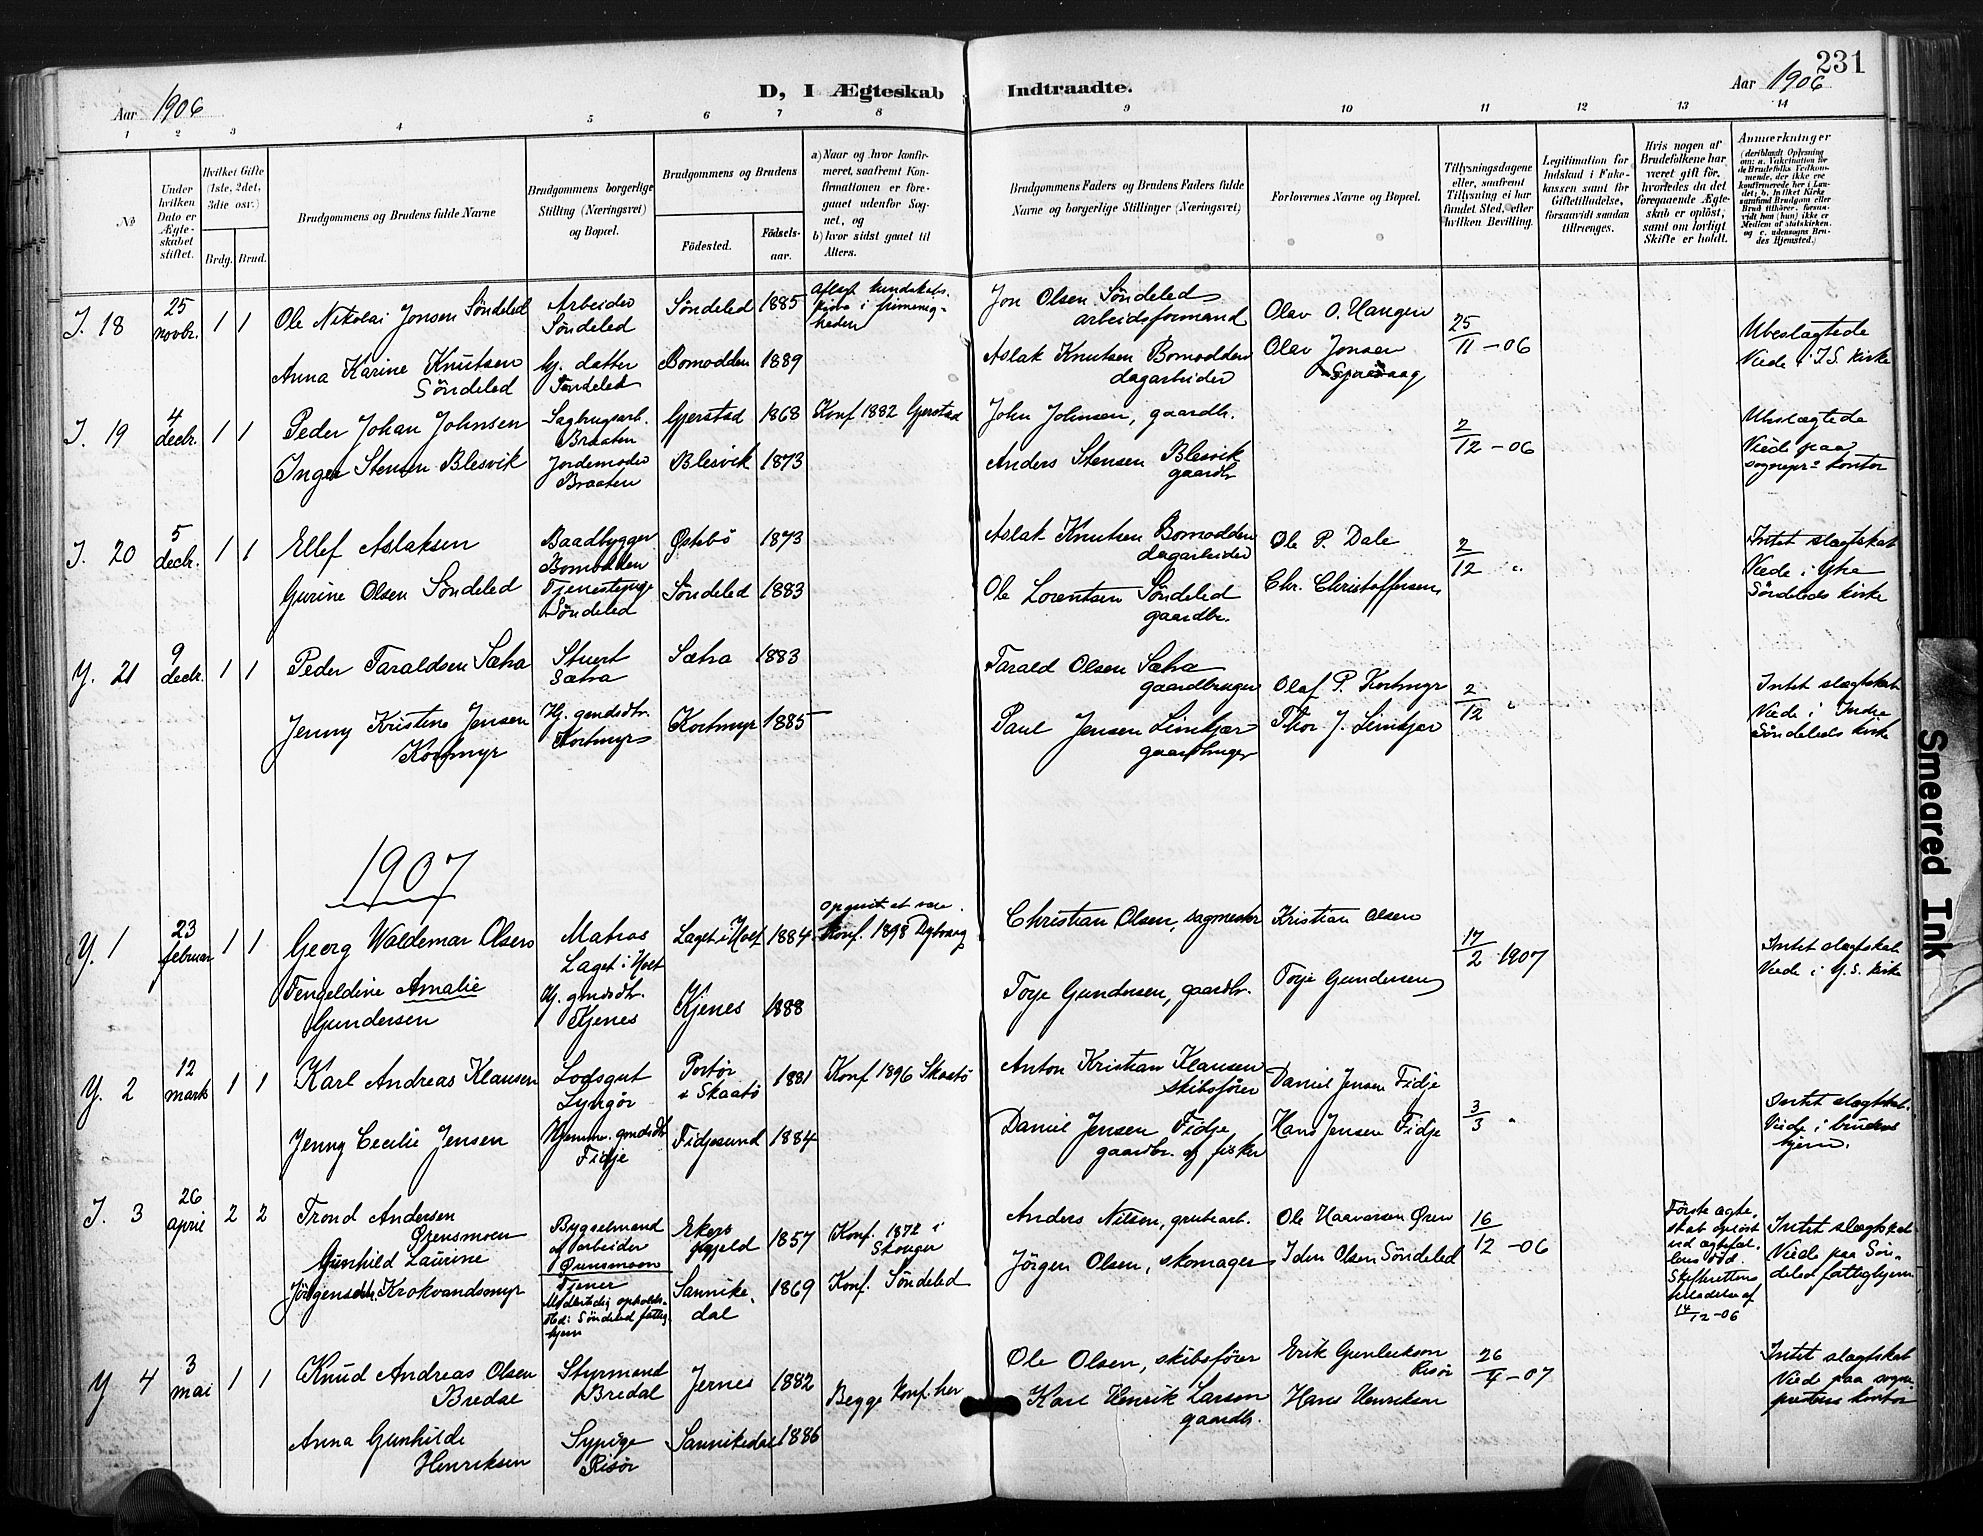 231
Aar 1906
D, I Ægteskab Indtraadte.
Aar 1906
1 2 3 4 5 6 7 8 9 10 11 12 13 14
No
Under
hvilken
Dato er
Ægte-
skabet
stiftet.
Hvilket Gifte
(1ste, 2det,
3die osv.)
Brdg. Brud.
Brudgommens og Brudens fulde Navne
Brudgommens borgerlige
Stilling (Næringsvei)
og Bopæl.
Brudgommens og Brudens
Fødested.
Fødsels-
aar.
a) Naar og hvor konfir-
meret, saafremt Kon-
firmationen er fore-
gaaet udenfor Sog-
net, og
b) hvor sidst gaaet til
Alters.
Brudgommens Faders og Brudens Faders fulde
Navne og borgerlige Stillinger (Næringsvei)
Forlovernes Navne og Bopæl.
Tillysningsdagene
eller, saafremt
Tillysning ei har
fundet Sted, efter
hvilken Bevilling.
Legitimation for
Indskud i Enke-
kassen samt for
Giftetilladelse,
forsaavidt saadan
tiltrænges.
Hvis nogen af
Brudefolkene har
været gift før,
hvorledes da det
foregaaende Ægte-
skab er opløst,
samt om lovligt
Skifte er holdt.
Anmærkninger
(deriblandt Oplysning
om: a. Vakcination for
de Brudefolks Vedkom-
mende, der ikke ere
konfirmerede her i Lan-
det; b. hvilket Kirke
samfund Brudgom eller
Brud tilhører, forsaa-
vidt han (hun) ikke er
Medlem af statskirken,
og c. udensogns Bru-
des Hjemsted.)
I. 18
25
novbr.
1 1
Ole Nikolai Jonsen Söndeled
Arbeider
Söndeled
Söndeled 1885
heden
Jon Olsen Söndeled
arbeidsformand
Olav O. Haugen
25
11 - 06
Ubeslægtede
Viede i I. S. kirke
Anna Karine Knutsen
Söndeled
Hj. datter
Söndeled
Bomodden 1889
Aslak Knutsen Bomodden
dagarbeider
Olav Jonsen
I. 19
4
decbr.
1 1
Peder Johan Johnsen
Sagbrugsarb.
Braaten
Gjerstad 1868 Konf 1882 Gjerstad
John Johnsen, gaardb.
2
12 - 06
Ubeslægtede
Viede paa
sognepr. kontor
Inger Stensen Blesvik
Jordemoder
Braaten
Blesvik 1873
Anders Stensen Blesvik
gaardb
I. 20
5
decbr.
1 1
Ellef Aslaksen
Baadbygger
Bomodden
Østebö 1873
Aslak Knutsen Bomodden
dagarbeider
Ole P. Dale
2
12 "
Intet slægtskab
Viede i Ytre
Söndeleds kirke
Gurine Olsen Söndeled
Tjenestepige
Söndeled
Söndeled 1883
Ole Lorentsen Söndeled
gaardbr.
Chr. Christoffersen
Y. 21
9
decbr.
1 1
Peder Taraldsen Sætra
Stuert
Sætra
Sætra 1883
Tarald Olsen Sætra
gaardbruger
Olaf P. Kortmyr
2
12 "
Intet slægtskab
Viede i Indre
Söndeleds kirke
Jenny Kristine Jensen
Kortmyr
Hj. gmdsdtr.
Kortmyr
Kortmyr 1885
Paul Jensen Limkjær
gaardbruger
Thor J. Limkjær
1907
Y. 1
23
februar
1 1
Georg Waldemar Olsen
Matros
Laget i Holt
Laget i Holt 1884
opgivet at være
Konf. 1898 Dybvaag
Christian Olsen, sagmester
Kristian Olsen
17
2 1907
Intet slægtskab
Viede i Y. S. kirke
Tengeldine Amalie
Gundersen
Hj. gmdsdtr.
Kjenes
Kjenes 1888
Torje Gundersen, gaardbr.
Torje Gundersen
Y. 2
12
marts
1 1
Karl Andreas Klausen
Lodsgut
Lyngör
Portör
i Skaatö
1881 Konf 1896 Skaatö
Anton Kristian Klausen
skibsfører
Daniel Jensen Fidje
3
3 "
Intet slægtskab.
Viede i brudens
hjem.
Jenny Cecilie Jensen
Hjemmev. gmdsdtr
Fidje
Fidjesund 1884
Daniel Jensen Fidje
gaardbr. og fisker
Hans Jensen Fidje
I. 3
26
april
2 2
Trond Andersen
Ørensmoen
Bygselmand
og arbeider
Ørensmoen
Ekers
prgjeld
1857
Konf. 1872 i
Skouger
Anders Nilsen, grubearb.
Ole Haavorsen Øren
16
12 - 06
Første ægte-
skab opløst
ved ægtefæl-
lens död
Skifterettens
tilladelse af
14/12 - 06
Intet slægtskab
Viede paa Sön-
deled fattighjem
Gunhild Laurine
Jörgensdtr. Krokvandsmyr
Tjener
Midlertidig opholds-
sted: Söndeled fattig-
hjem
Sannike-
dal
1869 Konf. Söndeled
Jörgen Olsen, skomager
Iden Olsen Söndeled
Y 4
3
mai
1 1
Knud Andreas Olsen
Bredal
Styrmand
Bredal
Jernes 1882
Begge konf. her
Ole Olsen, skibsfører
Erik Gunleikson
Risör
26
4 - 07
Intet slægtskab
Viede paa sogne-
prestens kontor
Anna Gunhilde
Henriksen
Sypige
Risör
Sannikedal 1886
Karl Henrik Larsen
gaardb.
Hans Henriksen
Smeared Ink